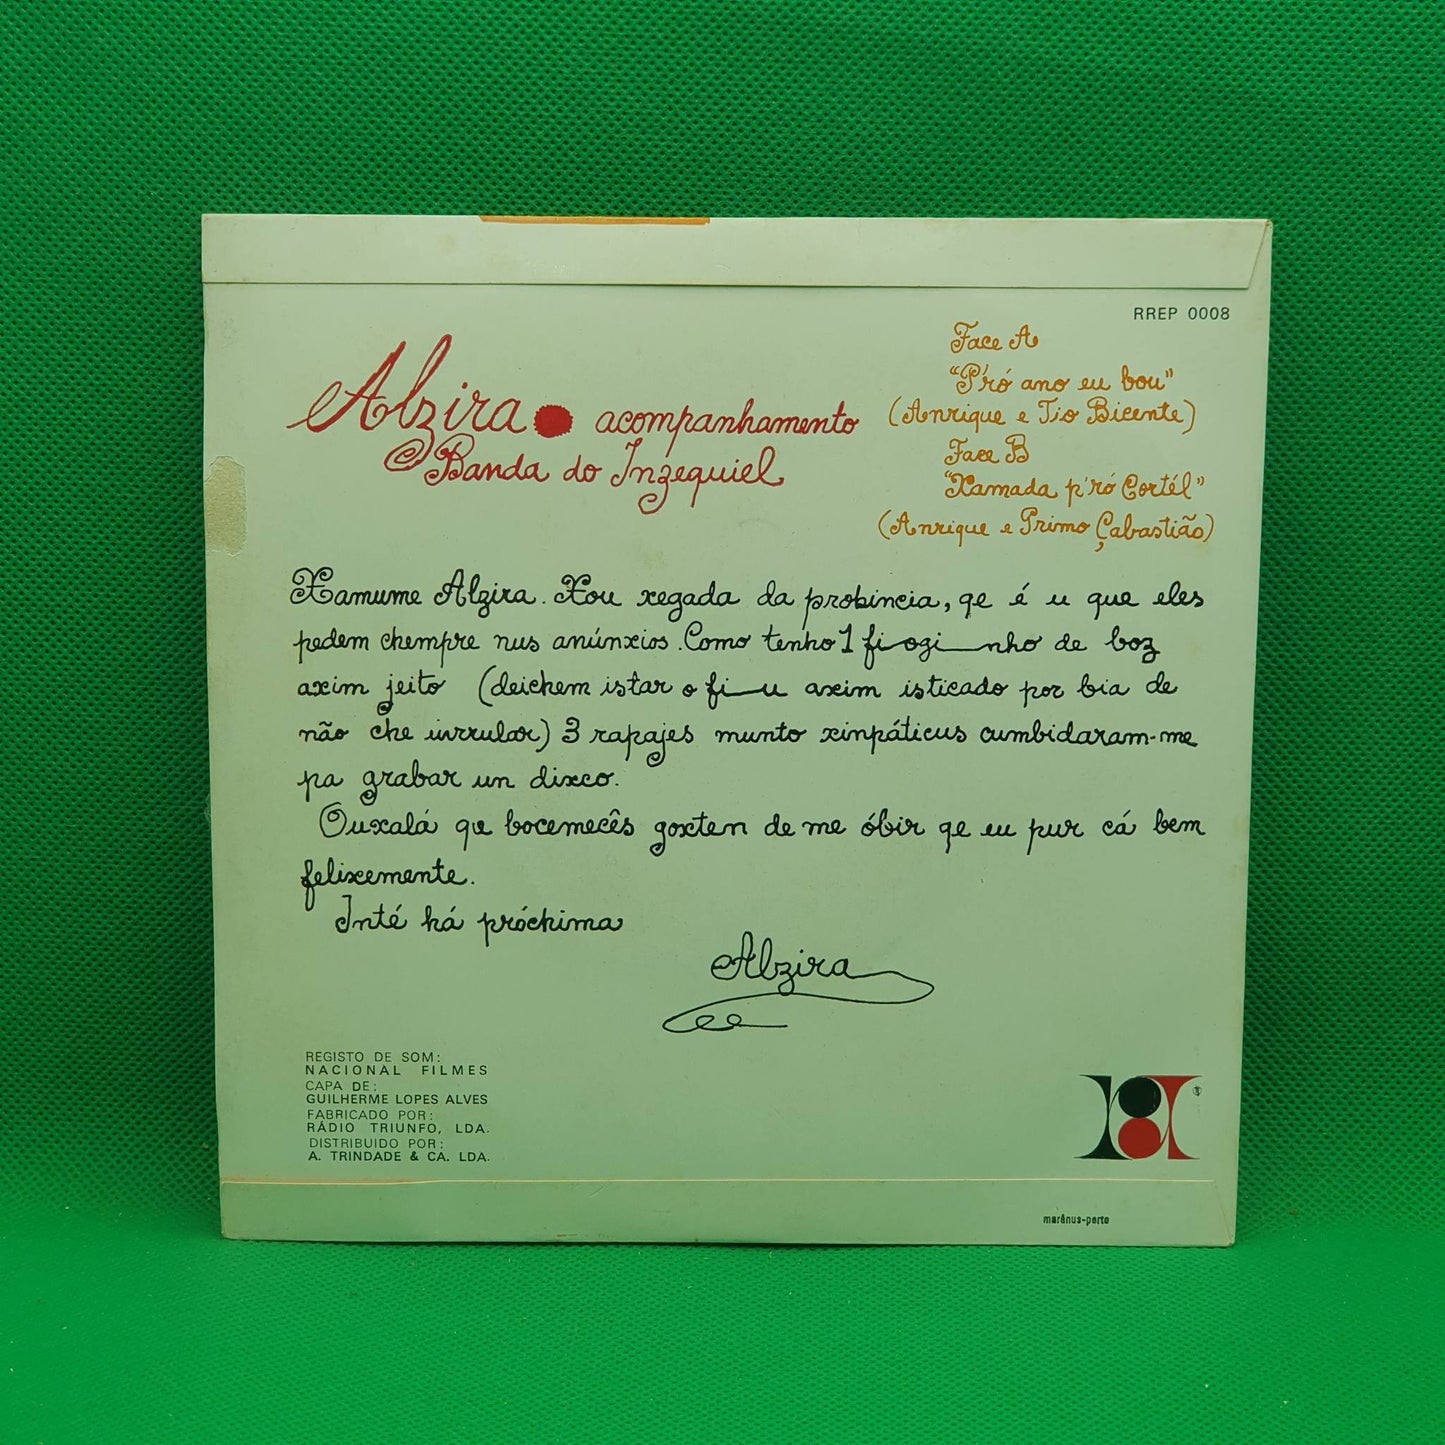 RREP 0008
Alzira acompanhamento
Banda do Inzequiel
Face A
"P'ró ano eu bou"
(Anrique e Tio Bicente)
Face B
"Xamada p'ró Cortél"
(Anrique e Primo Çabastião)
Xamume Alzira. Xou xegada da probincia, qe é u que eles
pedem chempre nus anúnxios. Como tenho 1 fioginho de boz
axim jeito (deichem istar o fiu axim isticado por bia de
não che inrrular) 3 rapajes munto xinpáticus cumbidaram-me
pa grabar un dixco.
Ouxalá qe bocemecês goxten de me óbir qe eu pur cá bem
felixemente.
Inté há próchima
Alzira
REGISTO DE SOM:
NACIONAL FILMES
CAPA DE:
GUILHERME LOPES ALVES
FABRICADO POR:
RÁDIO TRIUNFO, LDA.
DISTRIBUIDO POR:
A. TRINDADE & CA. LDA.
marânus-porto